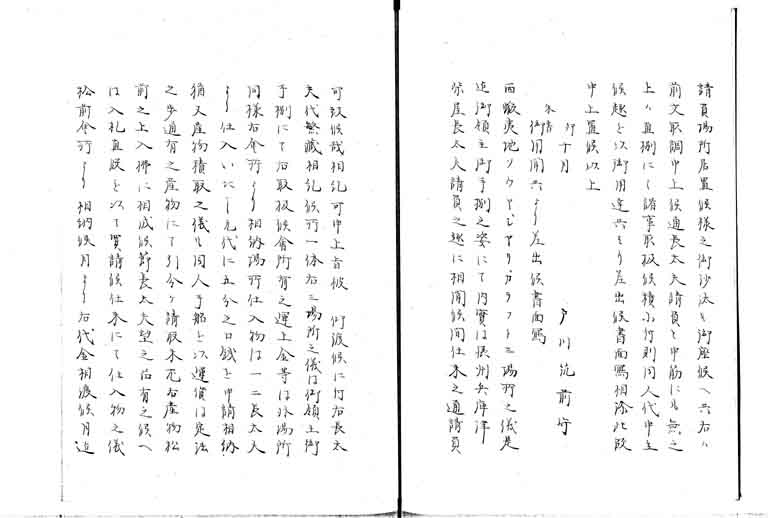 請負場所居置候様之御沙汰も御座候へ共右ハ
前文取調申上候通長太夫請負と申筋にも無之
上ハ直捌にて諸事取扱候積小行則同人代申立
候趣を以御用達共より差出候書面写相添此段
申上置候以上
卯十月
戸川筑前守
朱書
御用聞共より差出候書面写
西蝦夷地ソウヤヒヤリカラフト三場所之儀是
迄御領主御手捌之姿にて内実は摂州兵庫津
柴屋長太夫請負之趣に相聞候間仕来之通請負
可致候哉相糺可申上旨被 仰渡候に付右長太
夫代繁蔵相糺候所一体右三場所之儀は御領主御
手捌にて右取扱候会所有之運上金等は外場所
同様右会所より相納場所仕入物は一二長太夫
より仕入いたし元代に五分之口銭を申請相納
猶又産物積取之儀も同人手船を以運賃は定法
之歩通有之産物にて引合請取木尤右産物松
前之上入拂に相成候節長太夫望之品有之候へ
は入札直段を以て買請候仕来にて仕入物之儀
松前会所より相納候月より右代金相渡候月迄